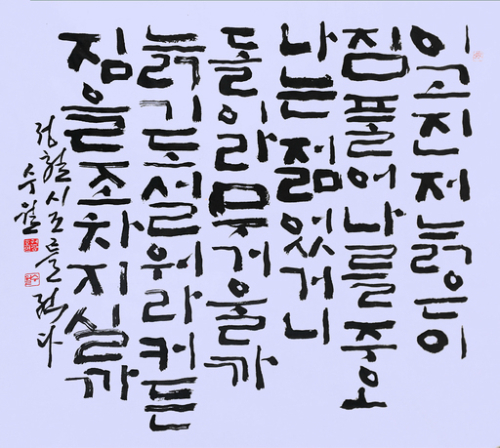 이고진저늙은이
짐풀어나를주오
나는젊었거니
돌이라무거울까
늙기도설워라커든
짐을조차지실까
정철시조를적다